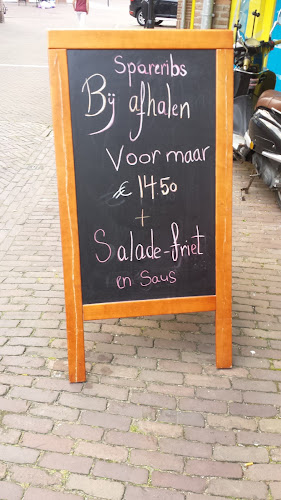 Spareribs
Bij afhalen
Voor maar
€ 14.50
+
Salade-friet
en Saus